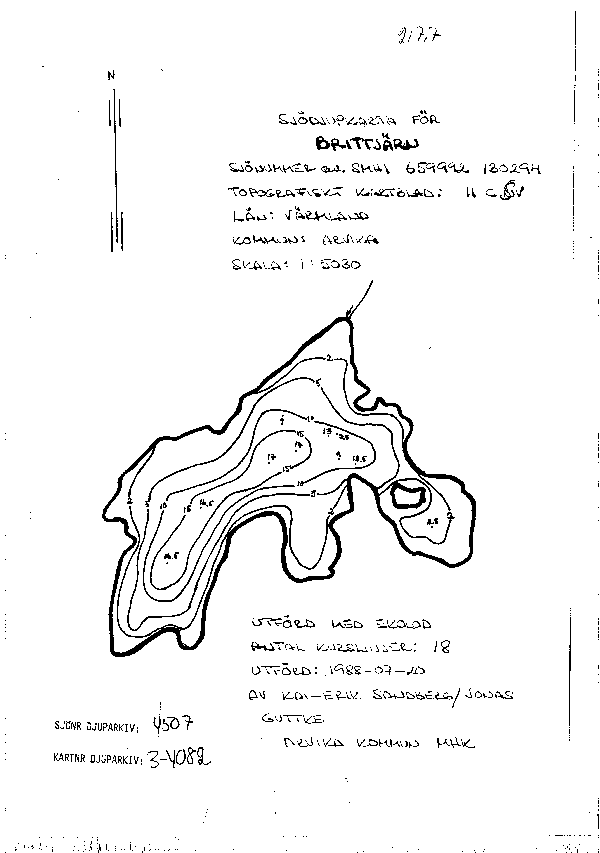 2177
N
SJÖDJUPKARTA FÖR
BRITTJÄRN
SJÖNUMMER enl. SMHI 659992 130294
TOPOGRAFISKT KARTBLAD: 11 C SV
LÄN: VÄRMLAND
KOMMUN: ARVIKA
SKALA: 1:5030
2
5
10
15
17
17
15
10
5
2
5
10
15
14,5
14,5
2
UTFÖRD MED EKOLOD
ANTAL KURSLINJER: 18
UTFÖRD: 1988-07-20
AV KAI-ERIK SANDBERG/JONAS
GUTTKE
ARVIKA KOMMUN MHK
SJÖNR DJUPARKIV: 4507
KARTNR DJUPARKIV: 3-4082